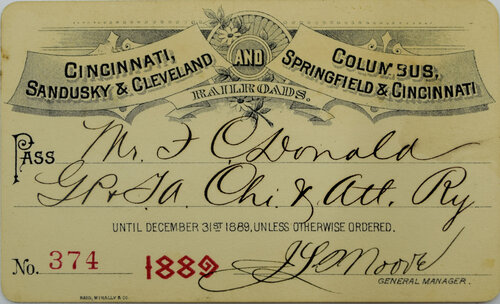 CINCINNATI, SANDUSKY & CLEVELAND
AND
COLUMBUS, SPRINGFIELD & CINCINNATI
RAILROADS.
PASS Mr. F C. Donald
GP & Ta. Chi. & Att. Ry
UNTIL DECEMBER 31ST 1889, UNLESS OTHERWISE ORDERED.
No. 374 1889
GENERAL MANAGER.
RAND, MCNALLY & CO.